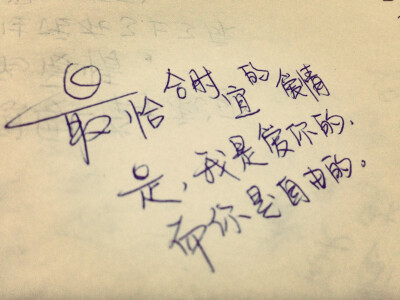 最恰合时宜的爱情
是，我是爱你的、
而你是自由的。